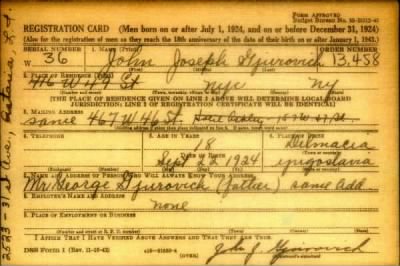 FORM APPROVED
REGISTRATION CARD—(Men born on or after July 1, 1924, and on or before December 31, 1924)
(For the registration of men as they reach the 18th anniversary of the date of their birth on or after January 1, 1943.)
SERIAL NUMBER 1. NAME (Print) ORDER NUMBER
W 36 John Joseph Gjurovich 13,458
2. PLACE OF RESIDENCE (Print)
416 W 44 St NYC NY
(THE PLACE OF RESIDENCE GIVEN ON LINE 2 ABOVE WILL DETERMINE LOCAL BOARD
JURISDICTION; LINE 2 OF REGISTRATION CERTIFICATE WILL BE IDENTICAL)
3. MAILING ADDRESS
same 467 W 46 St.
4. TELEPHONE 5. AGE IN YEARS 6. PLACE OF BIRTH
18 Dalmacia
DATE OF BIRTH
Sept 22 1924 Yugoslavia
7. NAME AND ADDRESS OF PERSON WHO WILL ALWAYS KNOW YOUR ADDRESS
Mr George Gjurovich (father) same add
8. EMPLOYER'S NAME AND ADDRESS
none
9. PLACE OF EMPLOYMENT OR BUSINESS
I AFFIRM THAT I HAVE VERIFIED ABOVE ANSWERS AND THAT THEY ARE TRUE.
DSS Form 1 (Rev. 11-16-42) (OVER) John J. Gjurovich
2523-31 St Ave., Astoria L.I.